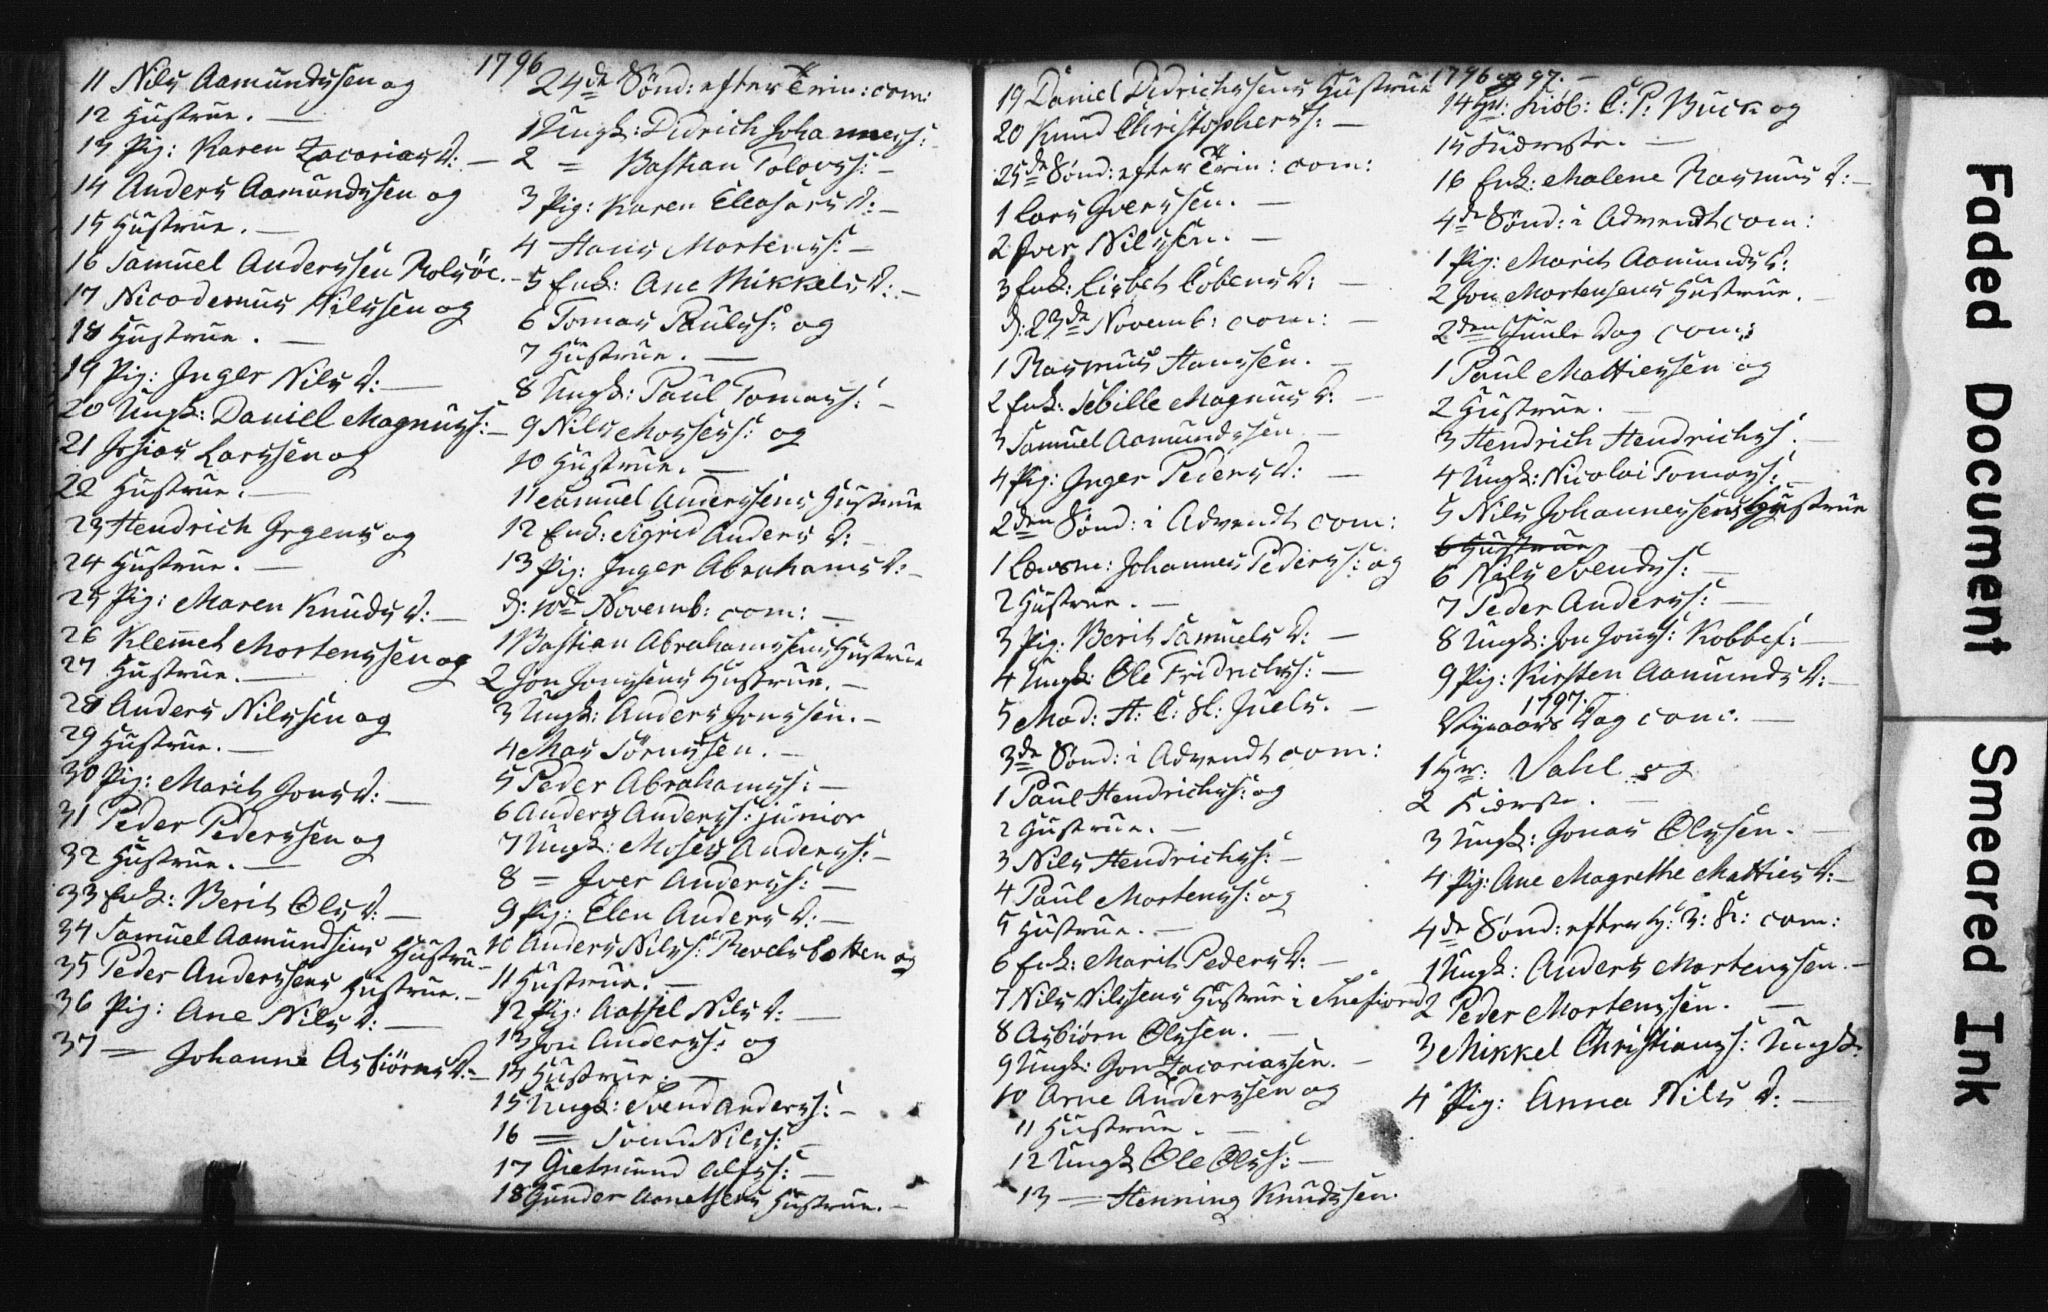 1796
11 Nils Aamundssen og
12 Hustrue. —
13 Pig: Karen Zacarias D: —
14 Anders Aamundssen og
15 Hustrue. —
16 Samuel Anderssen Rolsöe. —
17 Nicodemus Nilssen og
18 Hustrue. —
19 Pig: Inger Nils D: —
20 Ungk: Daniel Magnuss: —
21 Josias Larssen og
22 Hustrue. —
23 Hendrich Jrgens og
24 Hustrue. —
25 Pig: Maren Knuds D: —
26 Klemmet Mortenssen og
27 Hustrue. —
28 Anders Nilssen og
29 Hustrue. —
30 Pig: Marit Jons D: —
31 Peder Pederssen og
32 Hustrue. —
33 Enk: Berit Ols D: —
34 Samuel Aamundsens Hustrue —
35 Peder Anderssens Hustrue. —
36 Pig: Ane Nils D: —
37 = Johanne Asbiörns D: —
24de Sönd: efter Trin: com:
1 Ungk: Didrich Johanness: —
2 = Bastian Tolovs: —
3 Pig: Karen Eleasars D: —
4 Hans Mortens: —
5 Enk: Ane Mikkels D: —
6 Tomas Pauls: og
7 Hustrue. —
8 Ungk: Paul Tomas: —
9 Nils Moses: og
10 Hustrue. —
11 Samuel Anderssens Hustrue
12 Enk: Sigrid Anders D: —
13 Pig: Inger Abrahams D: —
d: 10de Novemb: com: —
1 Bastian Abrahamssens Hustrue
2 Jon Jonssens Hustrue. —
3 Ungk: Anders Jonssen. —
4 Mas Törnssen. —
5 Peder Abrahams: —
6 Anders Anders: junior
7 Ungk: Moses Anders: —
8 = Iver Anders: —
9 Pig: Elen Anders D: —
10 Anders Nils: Revelsbotten og
11 Hustrue. —
12 Pig: Aatsel Nils D: —
13 Jon Anders: og
14 Hustrue. —
15 Ungk: Svend Anders: —
16 = Svend Nils: —
17 Gietmund Alfs: —
18 Gunder Arnetsens Hustrue. —
1796 og 97. —
19 Daniel Didrichssens Hustrue
20 Knud Christophers: —
25de Sönd: efter Trin: com:
1 Lars Iverssen. —
2 Iver Nilssen. —
3 Enk: Lisbet Cobens D: —
d: 23de Novemb: com: —
1 Rasmus Hanssen. —
2 Enk: Sebille Magnus D: —
3 Samuel Aamundssen —
4 Pig: Inger Peders D: —
2den Sönd: i Advendt com:
1 Lensm: Johannes Peders: og
2 Hustrue. —
3 Pig: Berit Samuels D: —
4 Ungk: Ole Fridrichs: —
5 Mad: A: C: Sl: Juels. —
3de Sönd: i Advendt com:
1 Paul Hendrichs: og
2 Hustrue. —
3 Nils Hendrichs: —
4 Paul Mortens: og
5 Hustrue. —
6 Enk: Marit Peders D: —
7 Nils Nilssens Hustrue i Snefiord
8 Asbiörn Olssen. —
9 Ungk: Jon Zacariassen. —
10 Arne Anderssen og
11 Hustrue. —
12 Ungk Ole Ols: —
13 — Henning Knudssen.
14 Hr: Kiöb: C: P: Buck og
15 Kiæreste. —
16 Enk: Malene Rasmus D: —
4de Sönd: i Advendt com:
1 Pig: Marit Aamunds D:
2 Jon Mortensens Hustrue. —
2den Juule Dag com:
1 Paul Mattiessen og
2 Hustrue. —
3 Hendrich Hendrichs: —
4 Ungk: Nicolai Tomas: —
5 Nils Johannessens Hustrue
6 Hustrue
6 Nils Svends: —
7 Peder Anders: —
8 Ungk: Jon Jons: Kobbef: —
9 Pig: Kirsten Aamunds D: —
1797.
Nyaars Dag com: —
1 Hr: Dahl og
2 Kiærste. —
3 Ungk: Jonas Olssen. —
4 Pig: Ane Magrethe Matties D: —
4de Sönd: efter H: 3: K: com:
1 Ungk: Anders Mortenssen. —
2 Peder Mortenssen. —
3 Mikkel Christians: Ungk.
4 Pig: Anna Nils D: —
Faded Document
Smeared Ink